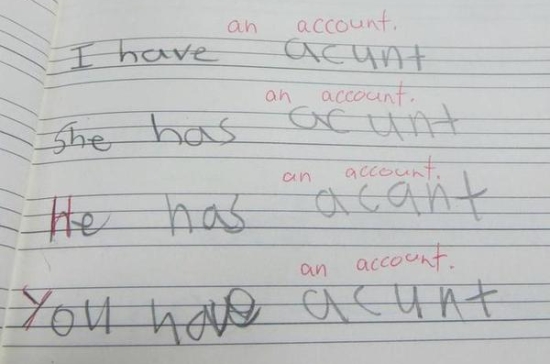 an account.
I have acunt
an account.
She has acunt
an account.
He has acant
an account.
You have acunt